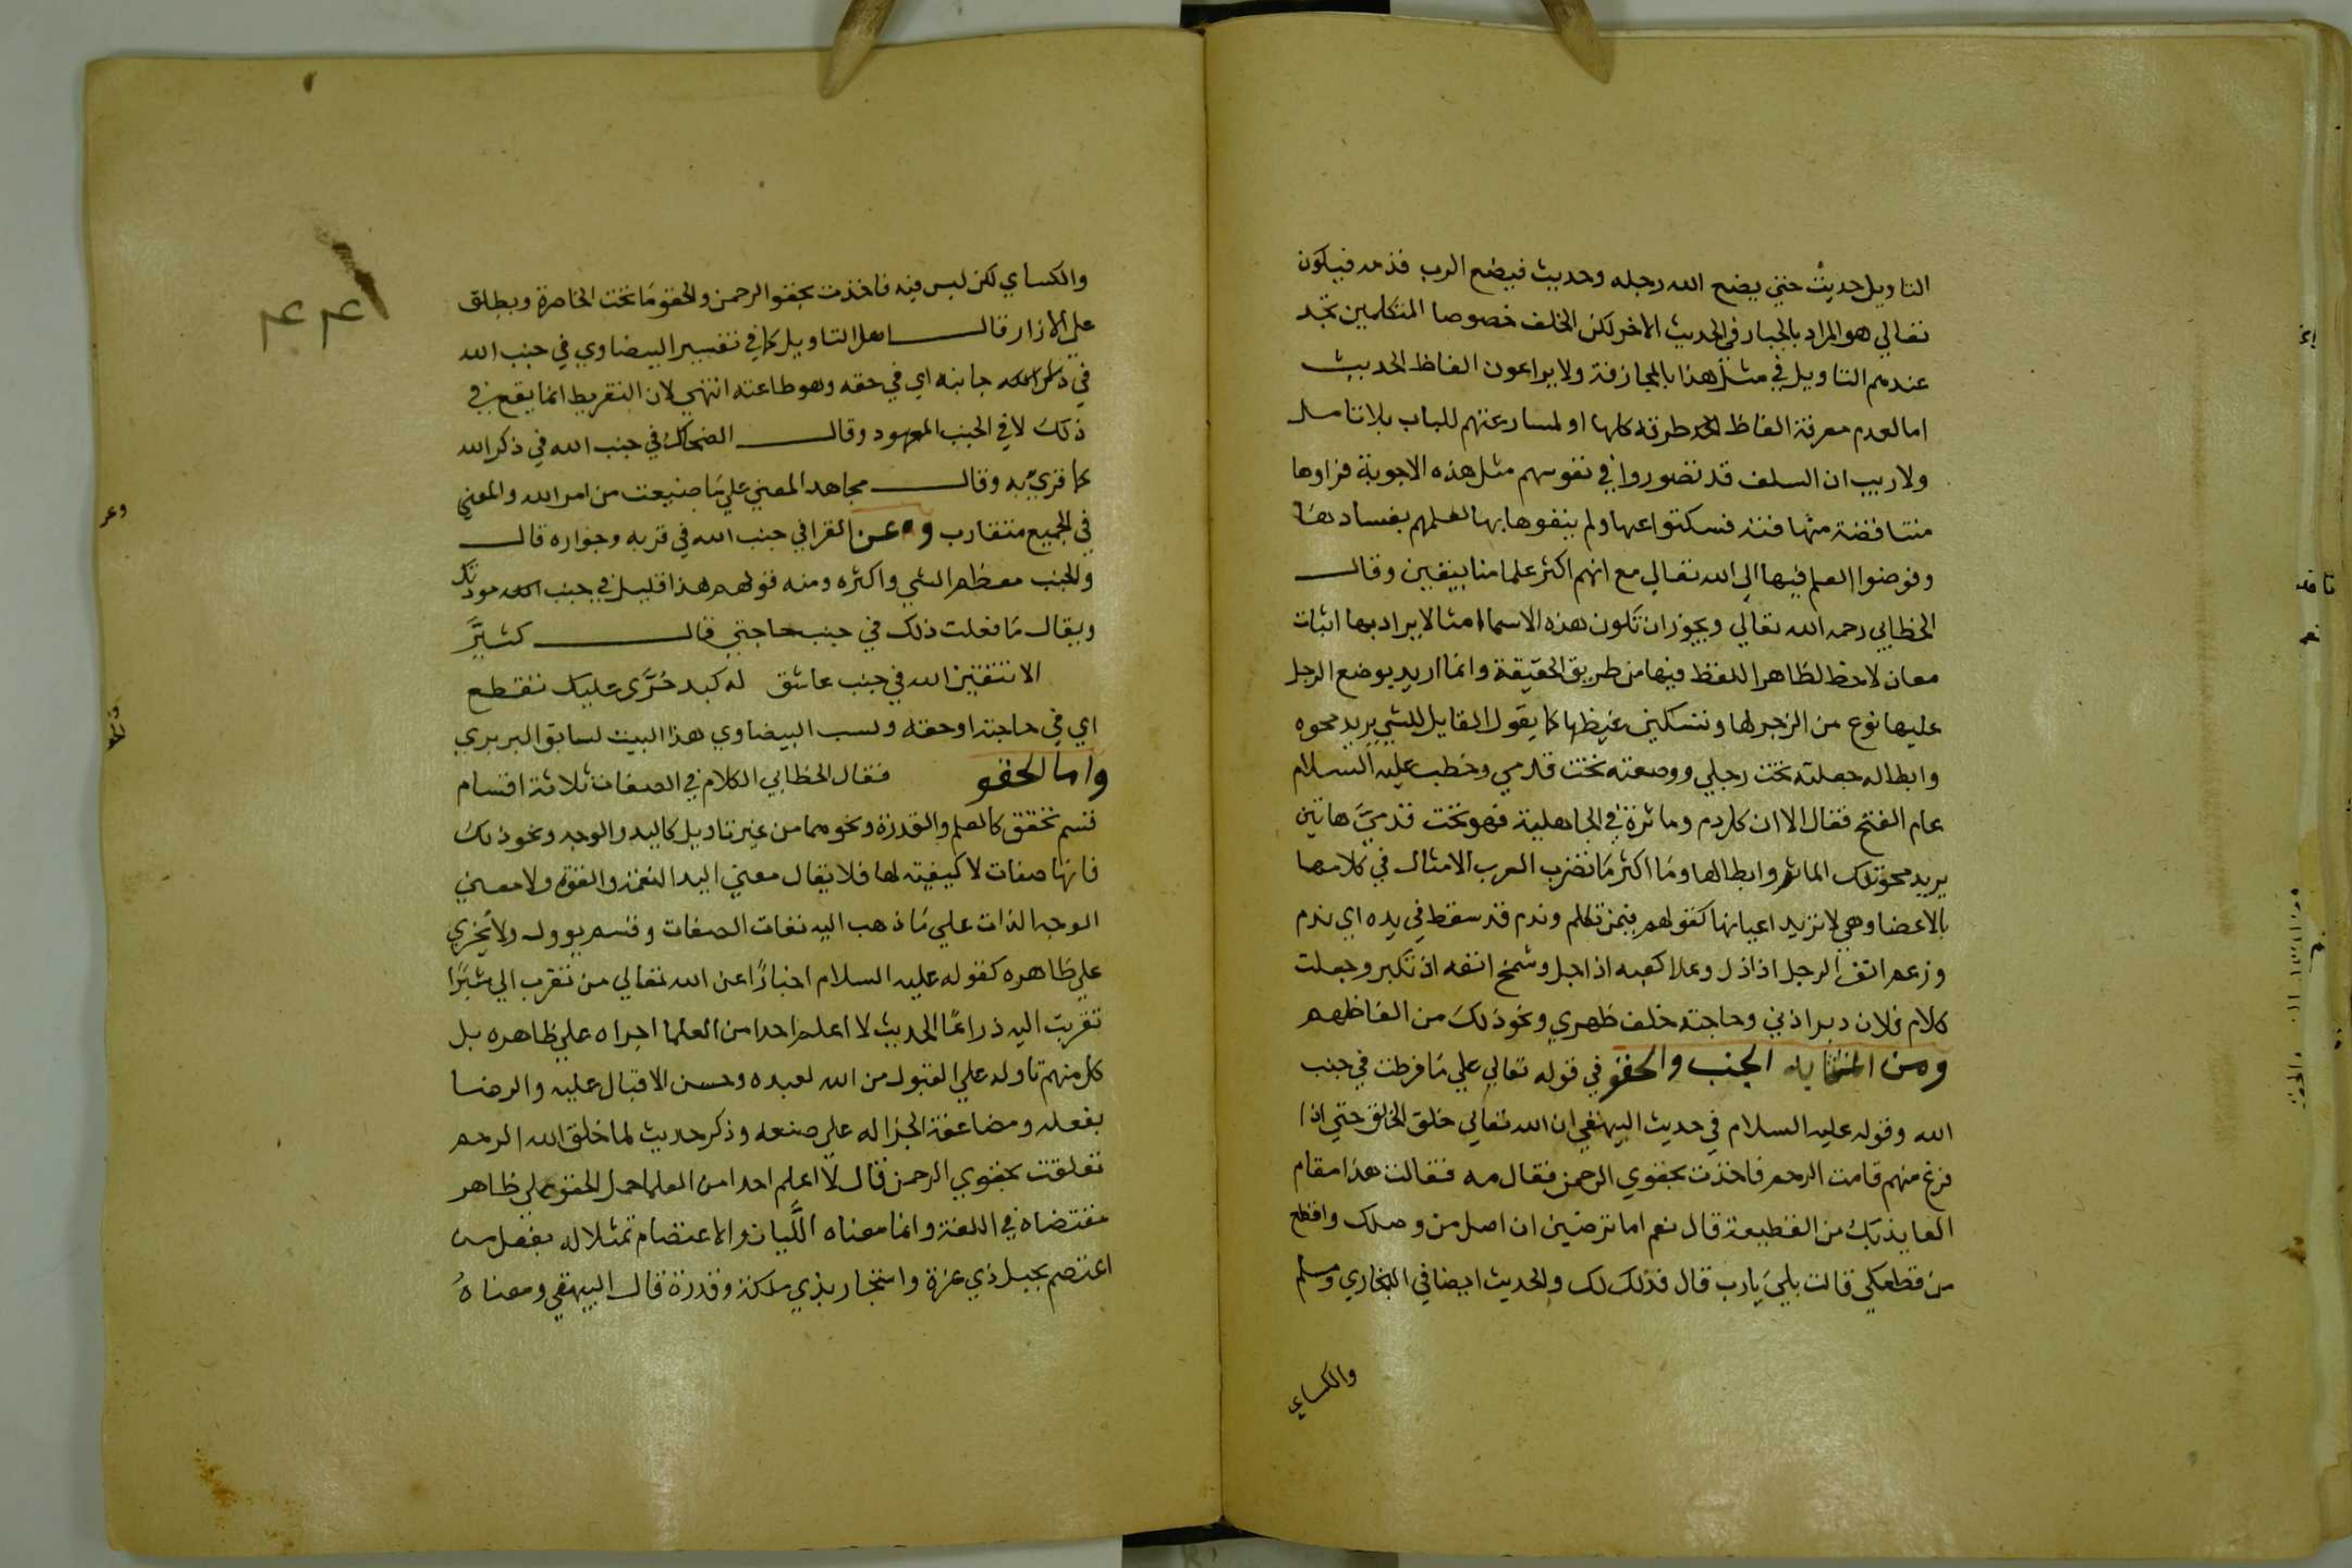 التاويل حديث حتي يضع الله رجله وحديث فيضع الرب قدمه فيكون
تعالي هو المراد بالجبار في الحديث الاخر لكن الخلف خصوصا المتكلمين تجد
عندهم التاويل في مثل هذا بالمجازفة ولا يراعون الفاظ الحديث
اما لعدم معرفة الفاظ طرقه كلها او لمسارعتهم للباب بلا تامل
ولا ريب ان السلف قد تصوروا في نفوسهم مثل هذه الاجوبة فراوها
متناقضة فسكتوا عنها ولم ينفوها بها لعلمهم بفسادها
وفوضوا العلم فيها الي الله تعالي مع انهم اكثر علما منا بيقين وقال
الخطابي رحمه الله تعالي ويجوز ان تكون هذه الاسماء امثالا يراد بها اثبات
معان لا حظ لظاهر اللفظ فيها من طريق الحقيقة وانما اريد بوضع الرجل
عليها نوع من الزجر لها وتسكين غيظها كما يقول القايل للشي يريد محوه
وابطاله جعلته تحت رجلي ووضعته تحت قدمي وخطب عليه السلام
عام الفتح فقال الا ان كل دم وماثرة في الجاهلية فهو تحت قدميَّ هاتين
يريد محو تلك الماثر وابطالها وما اكثر ما تضرب العرب الامثال في كلامها
بالاعضا وهي لا تريد اعيانها كقولهم فيمن تكلم وندم قد سقط في يده اي ندم
ورغم انف الرجل اذا ذل وعلا كعبه اذا جل وشمخ انفه اذ تكبر وجعلت
كلام فلان دبر اذني وحاجته خلف ظهري ونحو ذلك من الفاظهم
ومن المتشابه الجنب والحقو في قوله تعالي علي ما فرطت في جنب
الله وقوله عليه السلام في حديث البيهقي ان الله تعالي خلق الخلق حتي اذا
فرغ منهم قامت الرحم فاخذت بحقوي الرحمن فقال مه فقالت هذا مقام
العايذ بك من القطيعة قال نعم اما ترضين ان اصل من وصلك واقطع
من قطعك قالت بلي يا رب قال فذلك لك والحديث ايضا في البخاري ومسلم
والكساي
والكساي لكن ليس فيه فاخذت بحقو الرحمن والحقو ما تحت الخاصرة ويطلق
علي الازار قال اهل التاويل كما في تفسير البيضاوي في جنب الله
في جانبه اي في حقه وهو طاعته انتهي لان التفريط انما يقع في
ذلك لا في الجنب المعهود وقال الضحاك في جنب الله في ذكر الله
كما قري به وقال مجاهد المعني علي ما ضيعت من امر الله والمعني
في الجميع متقارب وعن الفرا في جنب الله في قربه وجواره قال
والجنب معظم الشي واكثره ومنه قولهم هذا قليل في جنب مودتك
ويقال ما فعلت ذلك في جنب حاجتي قال كثيَّر
الا تتقين الله في جنب عاشق له كبد حَرَّى عليك تقطع
اي في حاجته او حقه ونسب البيضاوي هذا البيت لسابق البربري
واما الحقو فقال الخطابي الكلام في الصفات ثلاثة اقسام
قسم تحقق كالعلم والقدرة ونحوهما من غير تاويل كاليد والوجه ونحو ذلك
فانها صفات لا كيفية لها فلا يقال معني اليد النعمة والقوة ولا معني
الوجه الذات علي ما ذهب اليه نفات الصفات وقسم يوول ولا يُجري
علي ظاهره كقوله عليه السلام اخبارًا عن الله تعالي من تقرب الي شبرًا
تقربت اليه ذراعًا الحديث لا اعلم احدا من العلما اجراه علي ظاهره بل
كل منهم تاوله علي القبول من الله لعبده وحسن الاقبال عليه والرضا
بفعله ومضاعفة الجزا له علي صنعه وذكر حديث لما خلق الله الرحم
تعلقت بحقوي الرحمن قال لا اعلم احدا من العلما حمل الحقو علي ظاهر
مقتضاه في اللغة وانما معناه اللَّياذ والاعتصام تمثلا له بفعل من
اعتصم بحبل ذي عزة واستجار بذي ملكة وقدرة قال البيهقي ومعناهُ